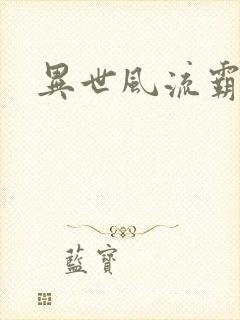 異世風流霸
藍寶